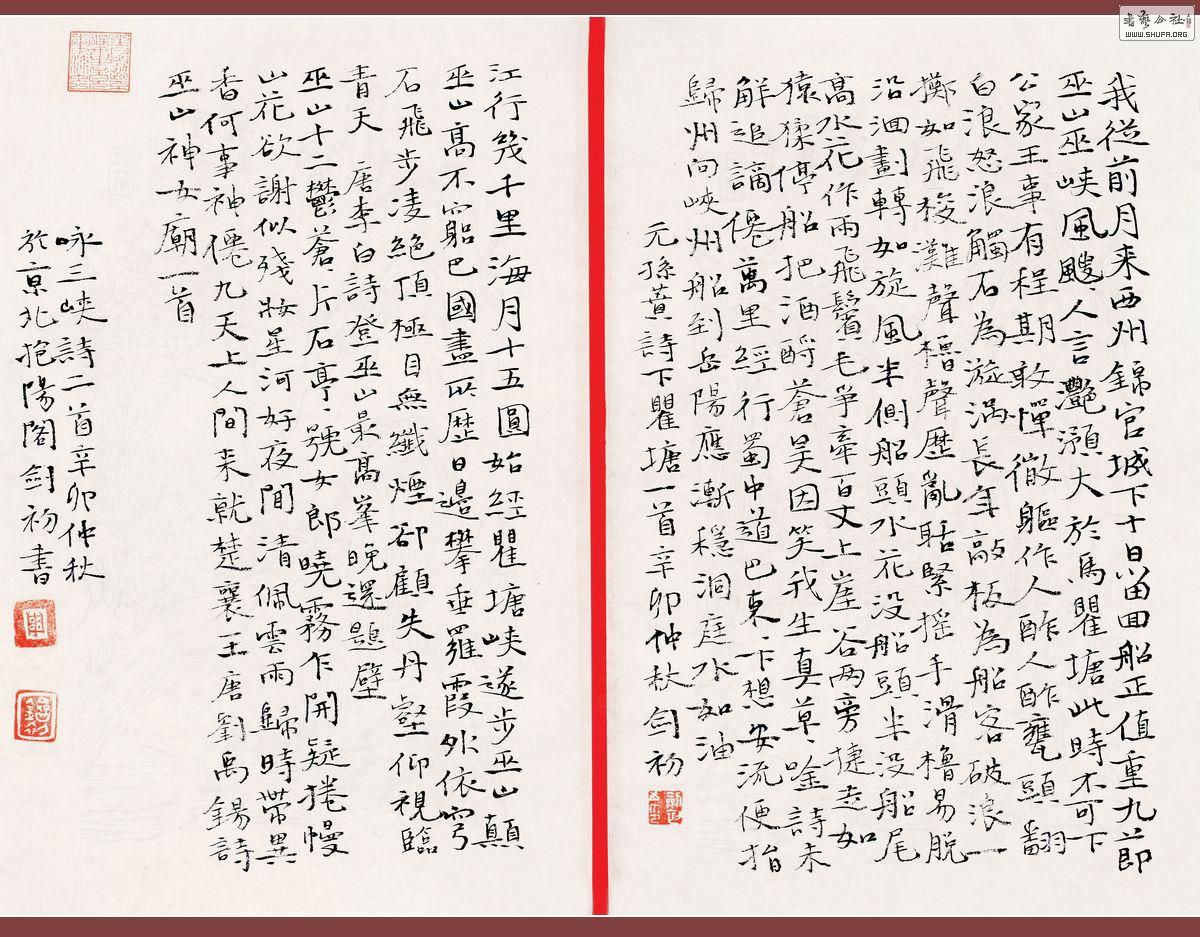 我從前月来西州錦官城下十日留回船正值重九節
巫山巫峡風颼颼人言灧澦大於馬瞿塘此時不可下
公家王事有程期敢憚微軀作人酢人酢甕頭翻
白浪怒浪觸石為漩渦長年敲板為船客破浪一
擲如飛梭灘聲櫓聲歷亂聒緊摇手滑櫓易脱
沿洄劃轉如旋風半側船頭水花没船頭半没船尾
高水花作雨飛鬢毛爭牽百丈上崖谷两旁捷走如
猿猱停船把酒酹蒼昊因笑我生真草、唫詩未
解追謫僊萬里經行蜀中道巴東、下想安流便指
歸州向峽州船到岳陽應漸穩洞庭水如油
元孫蕡詩下瞿塘一首辛卯仲秋剑初
江行幾千里海月十五圓始經瞿塘峡遂步巫山巔
巫山高不窮巴國盡所歷日邊攀垂羅霞外依穹
石飛步凌絶頂極目無纖煙卻顧失丹壑仰視臨
青天 唐李白詩登巫山最高峯晚還題壁
巫山十二鬱蒼、片石亭、號女郎曉霧乍開疑捲幔
山花欲謝似殘妝星河好夜聞清佩雲雨歸時帶異
香何事神僊九天上人間来就楚襄王唐劉禹錫詩
巫山神女廟一首
咏三峡詩二首辛卯仲秋
於京北抱陽閣剑初書
WWW.SHUFA.ORG